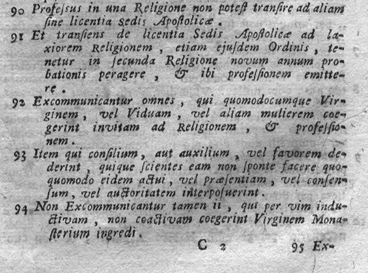 90 Profeſsus in una Religione non poteſt tranſire ad aliam
ſine licentia Sedis Apoſtolicæ.
91 Et tranſiens de licentia Sedis Apoſtolicæ ad la-
xiorem Religionem, etiam ejuſdem Ordinis, te-
netur in ſecunda Religione novum annum pro-
bationis peragere, & ibi profeſſionem emitte-
re.
92 Excommunicantur omnes, qui quomodocumque Vir-
ginem, vel Viduam, vel aliam mulierem coe-
gerint invitam ad Religionem, & profeſſio-
nem.
93 Item qui conſilium, aut auxilium, vel favorem de-
derint, quique ſcientes eam non ſponte facere quo-
quomodo eidem actui, vel præſentiam, vel conſen-
ſum, vel auctoritatem interpoſuerint.
94 Non Excommunicantur tamen ii, qui per vim indu-
ctivam, non coactivam coegerint Virginem Mona-
ſterium ingredi.
C 2 95 Ex-